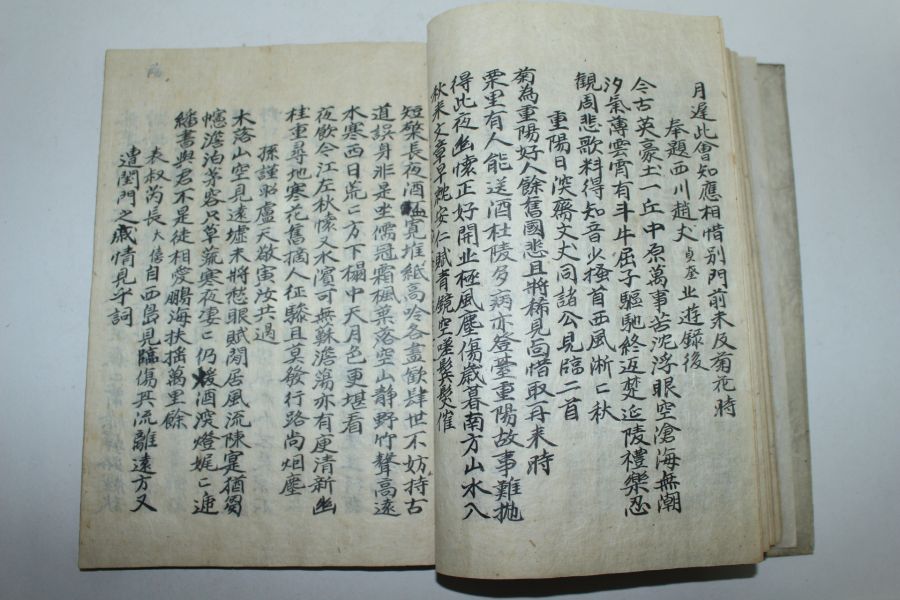 月遲此會知應相惜別門前未反菊花時
奉題西川趙丈 貞奎 北遊錄後
今古英豪土一丘中原萬事苦泥浮眼空滄海無潮
汐氣薄雲霄有斗牛屈子驅馳終返楚延陵禮樂忍
觀周悲歌料得知音少搔首西風淅二秋
重陽日深齋文丈同諸公見臨二首
菊為重陽好人餘舊國悲且將稀見面惜取再來時
栗里有人能送酒杜陵多病亦登臺重陽故事難拋
得此夜幽懷正好開北極風塵傷歲暮南方山水入
秋來文章早晚安仁賦青鏡空嗟鬂髮催
短檠長夜酒 寬堆紙高吟各盡歡肆世不妨持古
道誤身非是坐儒冠霜楓葉落空山靜野竹聲高遠
水寒西日荒二方下欄中天月色更堪看
夜飮今江左秋懷又水濱可無蘇澹蕩亦有庾清新幽
桂重尋地寒花舊摘人征驂且莫發行路尚烟塵
孫謹昭盧天敬寅汝共過
木落山空見遠墟未將愁眼賦閒居風流陳寔猶芻
幰澹泊茅容只草蔬寒夜凄二仍煖酒深燈娓二連
繙書與君不是徒相愛鵬海扶搖萬里餘
表叔芮長 大僖 自西島見臨傷其流離遠方又
遭閨門之慽情見乎詞